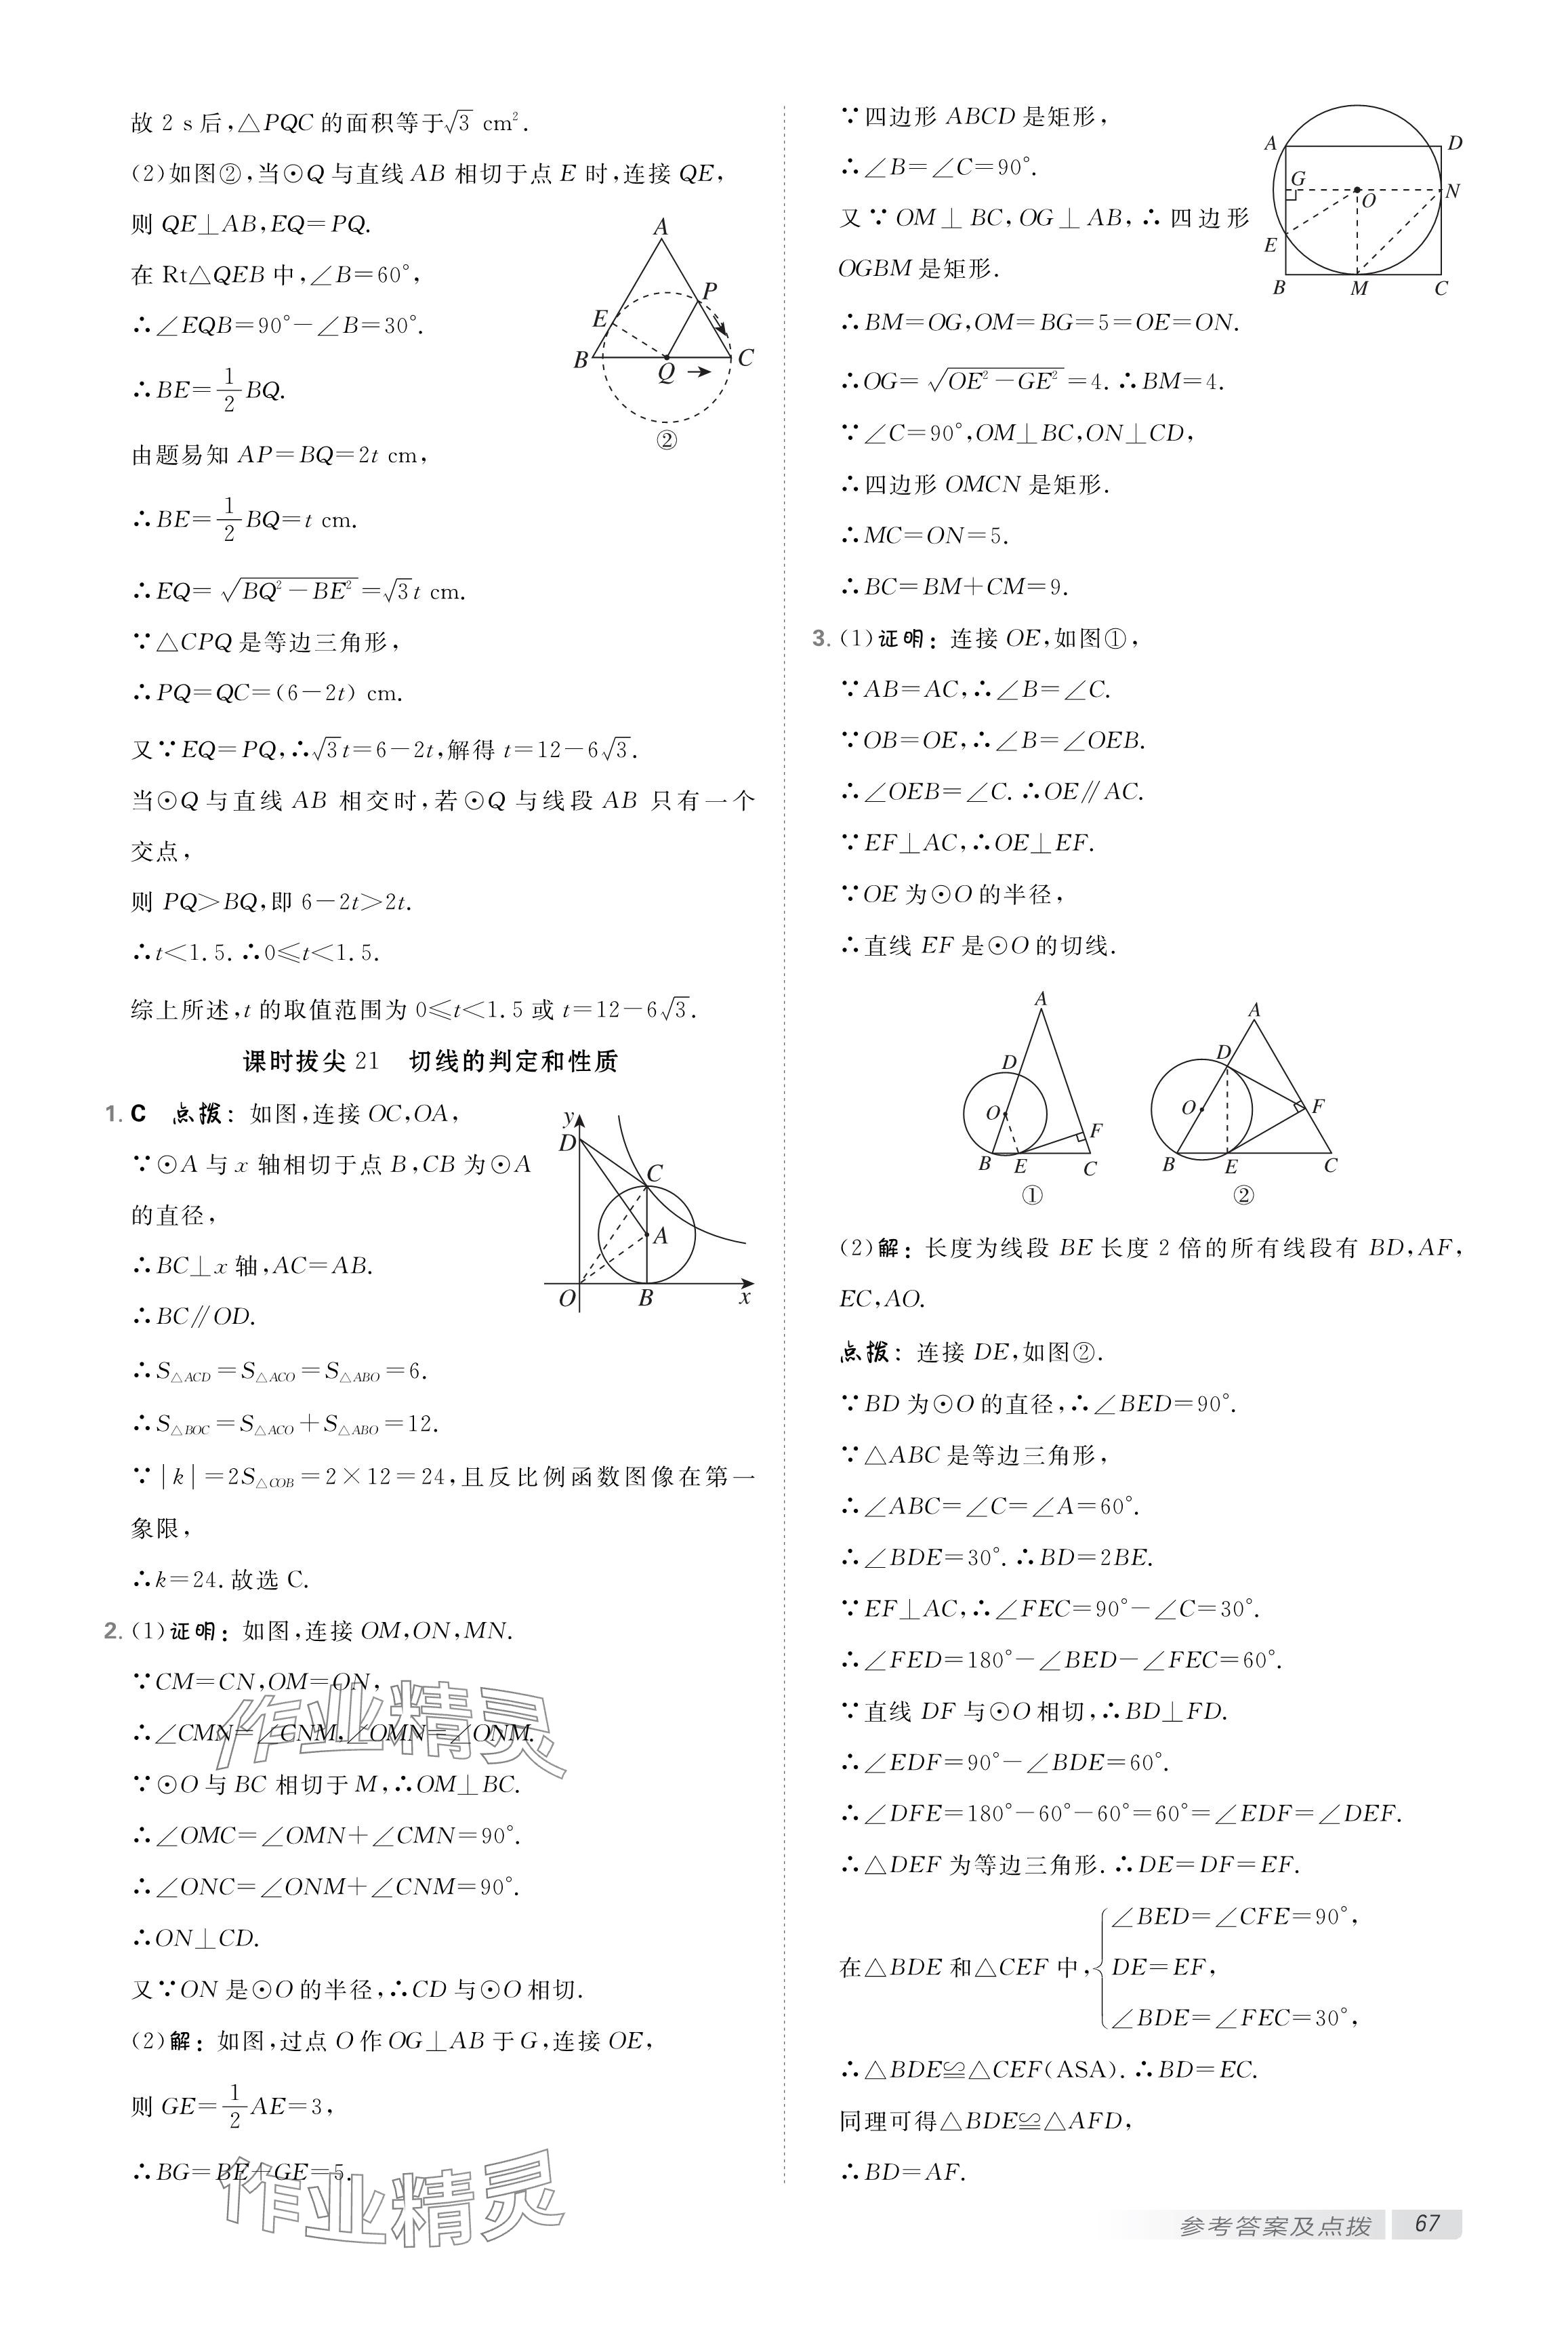 故 2 s后,△PQC 的面积等于√3 cm².
(2)如图②,当⊙Q 与直线 AB 相切于点 E 时,连接 QE,
则 QE⊥AB,EQ=PQ.
在 Rt△QEB 中,∠B=60°,
∴∠EQB=90°-∠B=30°.
∴BE=1/2 BQ.
由题易知 AP=BQ=2t cm,
∴BE=1/2 BQ=t cm.
∴EQ=√(BQ²-BE²)=√3 t cm.
∵△CPQ 是等边三角形,
∴PQ=QC=(6-2t) cm.
又∵EQ=PQ,∴√3 t=6-2t,解得 t=12-6√3.
当⊙Q 与直线 AB 相交时,若⊙Q 与线段 AB 只有一个
交点,
则 PQ>BQ,即 6-2t>2t.
∴t<1.5. ∴0≤t<1.5.
综上所述,t 的取值范围为 0≤t<1.5 或 t=12-6√3.
A
P
E
B
Q
C
②
课时拔尖 21 切线的判定和性质
1. C 点拨:如图,连接 OC,OA,
∵⊙A 与 x 轴相切于点 B,CB 为⊙A
的直径,
∴BC⊥x 轴,AC=AB.
∴BC∥OD.
∴S△ACD=S△ACO=S△ABO=6.
∴S△BOC=S△ACO+S△ABO=12.
∵|k|=2S△COB=2×12=24,且反比例函数图像在第一
象限,
∴k=24. 故选 C.
y
D
C
A
O
B
x
2. (1)证明:如图,连接 OM,ON,MN.
∵CM=CN,OM=ON,
∴∠CMN=∠CNM,∠OMN=∠ONM.
∵⊙O 与 BC 相切于 M,∴OM⊥BC.
∴∠OMC=∠OMN+∠CMN=90°.
∴∠ONC=∠ONM+∠CNM=90°.
∴ON⊥CD.
又∵ON 是⊙O 的半径,∴CD 与⊙O 相切.
(2)解:如图,过点 O 作 OG⊥AB 于 G,连接 OE,
则 GE=1/2 AE=3,
∴BG=BE+GE=5.
作业精灵
作业精灵
∵四边形 ABCD 是矩形,
∴∠B=∠C=90°.
又∵OM⊥BC,OG⊥AB,∴四边形
OGBM 是矩形.
∴BM=OG,OM=BG=5=OE=ON.
∴OG=√(OE²-GE²)=4. ∴BM=4.
∵∠C=90°,OM⊥BC,ON⊥CD,
∴四边形 OMCN 是矩形.
∴MC=ON=5.
∴BC=BM+CM=9.
A
D
G
O
N
E
B
M
C
3. (1)证明:连接 OE,如图①,
∵AB=AC,∴∠B=∠C.
∵OB=OE,∴∠B=∠OEB.
∴∠OEB=∠C. ∴OE∥AC.
∵EF⊥AC,∴OE⊥EF.
∵OE 为⊙O 的半径,
∴直线 EF 是⊙O 的切线.
A
D
O
F
B
E
C
①
A
D
O
F
B
E
C
②
(2)解:长度为线段 BE 长度 2 倍的所有线段有 BD,AF,
EC,AO.
点拨:连接 DE,如图②.
∵BD 为⊙O 的直径,∴∠BED=90°.
∵△ABC 是等边三角形,
∴∠ABC=∠C=∠A=60°.
∴∠BDE=30°. ∴BD=2BE.
∵EF⊥AC,∴∠FEC=90°-∠C=30°.
∴∠FED=180°-∠BED-∠FEC=60°.
∵直线 DF 与⊙O 相切,∴BD⊥FD.
∴∠EDF=90°-∠BDE=60°.
∴∠DFE=180°-60°-60°=60°=∠EDF=∠DEF.
∴△DEF 为等边三角形. ∴DE=DF=EF.
∠BED=∠CFE=90°,
在△BDE 和△CEF 中,{DE=EF,
∠BDE=∠FEC=30°,
∴△BDE≌△CEF(ASA). ∴BD=EC.
同理可得△BDE≌△AFD,
∴BD=AF.
参考答案及点拨 67